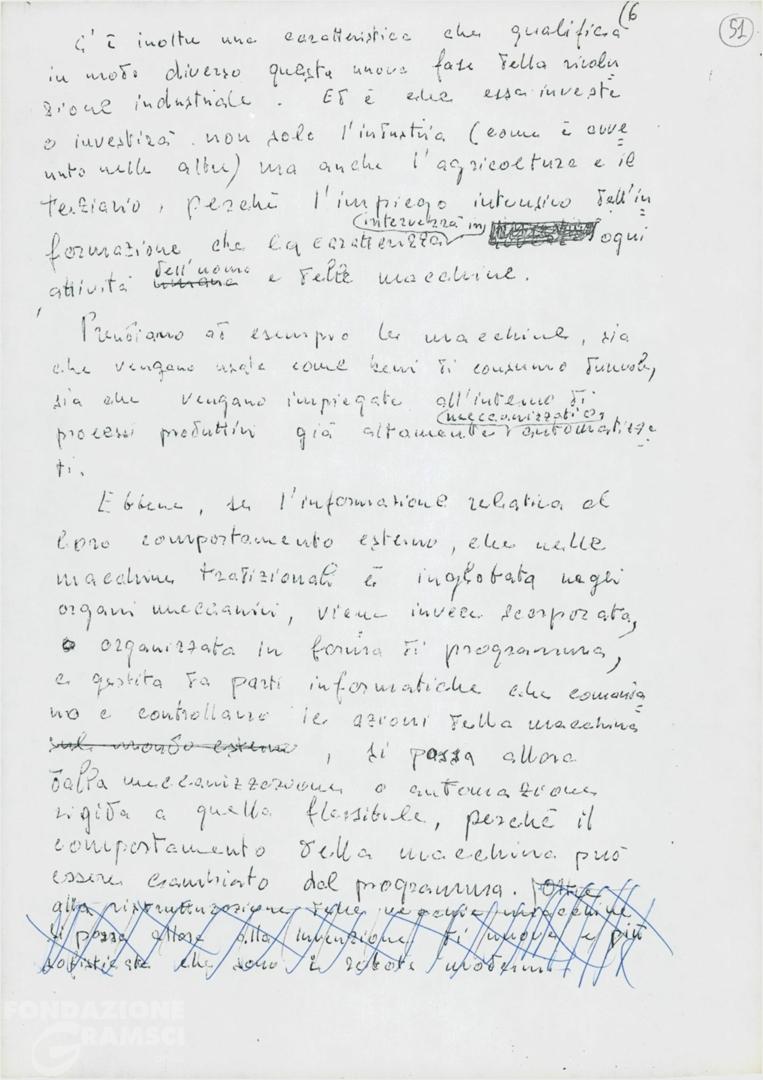 (6
51
C'è inoltre una caratteristica che qualifica
in modo diverso questa nuova fase della rivolu
zione industriale. Ed è che essa investe
o investirà non solo l'industria (come è avve
nuto nelle altre) ma anche l'agricoltura e il
terziario, perché l'impiego intensivo dell'in
formazione che la caratterizza interverrà in ogni
attività umana dell'uomo e delle macchine.
Prendiamo ad esempio le macchine, sia
che vengano usate come beni di consumo durevole,
sia che vengano impiegate all'interno di
processi produttivi già altamente meccanizzati o automatizza
ti.
Ebbene, se l'informazione relativa al
loro comportamento esterno, che nelle
macchine tradizionali è inglobata negli
organi meccanici, viene invece scorporata,
organizzata in forma di programma,
e gestita da parti informatiche che comanda
no e controllano le azioni della macchina
sul mondo esterno, si passa allora
dalla meccanizzazione o automazione
rigida a quella flessibile, perché il
comportamento della macchina può
essere cambiato dal programma. Oltre
alla ristrutturazione delle vecchie macchine
si passa allora alla invenzione di nuove e più
sofisticate che sono i robots moderni
FONDAZIONE
GRAMSCI